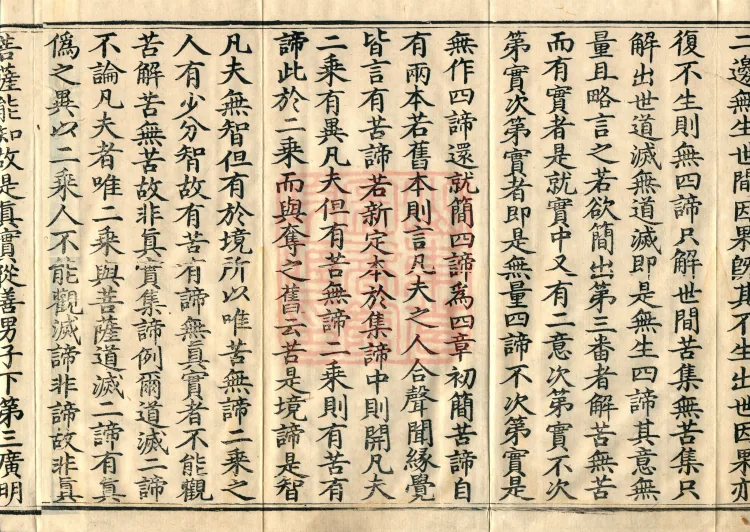 二邊無生世間因果旣其不生出世因果亦
復不生則無四諦只解世間苦集無苦集只
解出世道滅無道滅即是無生四諦其意無
量且略言之若欲簡出第三番者解苦無苦
而有實者是就實中又有二意次第實不次
第實次第實者即是無量四諦不次第實是
無作四諦還就簡四諦為四章初簡苦諦自
有兩本若舊本則言凡夫之人合聲聞緣覺
皆言有苦諦若新定本於集諦中則開凡夫
二乘有異凡夫但有苦無諦二乘則有苦有
諦此於二乘而與奪之舊云苦是境諦是智
凡夫無智但有於境所以唯苦無諦二乘之
人有少分智故有苦有諦無真實者不能觀
苦解苦無苦故非眞實集諦例爾道滅二諦
不論凡夫者唯二乘與菩薩道滅二諦有眞
僞之異以二乘人不能觀滅諦非諦故非眞
菩薩能知故是眞實從善男子下第三廣明